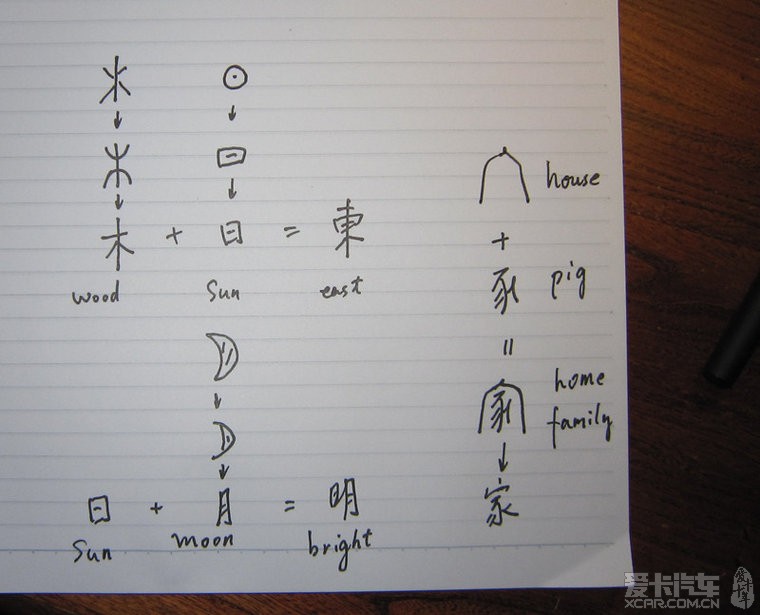 木 + 日 = 東
wood sun east
日 + 月 = 明
Sun moon bright
house
+
豕 pig
=
home
family
家
爱卡汽车
XCAR.COM.CN